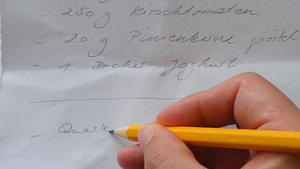 - 250 g Kirschtomaten
- 20 g Pinienkerne geröstet
- 1 Becher Joghurt
- Quark